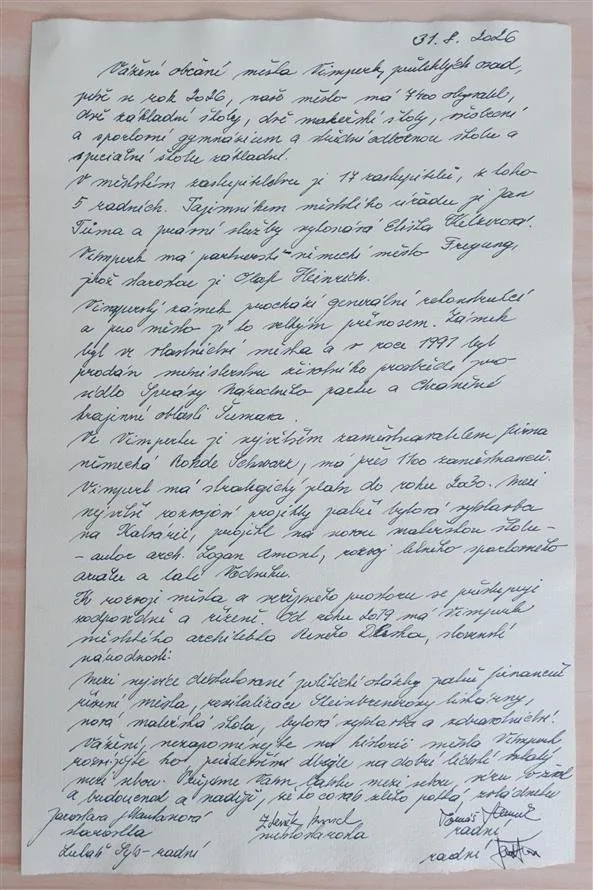 31. 8. 2026
Vážení občané města Vimperk, přilehlých osad,
píše se rok 2026, naše město má 7400 obyvatel,
dvě základní školy, dvě mateřské školy, všeobecné
a sportovní gymnázium a střední odbornou školu a
speciální školu základní.
V městském zastupitelstvu je 17 zastupitelů, z toho
5 radních. Tajemníkem městského úřadu je Jan
Tůma a právní služby vykonává Eliška
Vimperk má partnerské německé město Freyung,
jehož starostou je Olaf Heinrich.
Vimperský zámek prochází generální rekonstrukcí
a pro město je to velkým přínosem. Zámek
byl ve vlastnictví města a v roce 1997 byl
prodán ministerstvu životního prostředí pro
sídlo Správy Národního parku a Chráněné
krajinné oblasti Šumava.
Ve Vimperku je největším zaměstnavatelem firma
německá Rohde Schwarz, má přes 1100 zaměstnanců.
Vimperk má strategický plán do roku 2030. Mezi
největší rozvojové projekty patří bytová výstavba
na Kalvárii, projekt na novou mateřskou školu -
- autor arch. Logan Amont, rozvoj letního sportovního
areálu a také Vodníku.
K rozvoji města a veřejného prostoru se přistupuje
zodpovědně a řízeně. Od roku 2019 má Vimperk
městského architekta Reného slovenské
národnosti.
Mezi nejvíce diskutované politické otázky patří finanční
řízení města, revitalizace Steinbrenerovy tiskárny,
nová mateřská škola, bytová výstavba a zdravotnictví.
Vážení, nezapomínejte na historii města Vimperk
rozvíjejte ho a dbejte na dobré lidské vztahy
mezi sebou. Přejeme Vám lásku mezi sebou, víru
a budoucnost a naději, že to co vás zlého potká, zvládnete
Jaroslava Martanová Zdeněk Tomáš
starostka místostarosta radní
Lukáš Sýs - radní radní